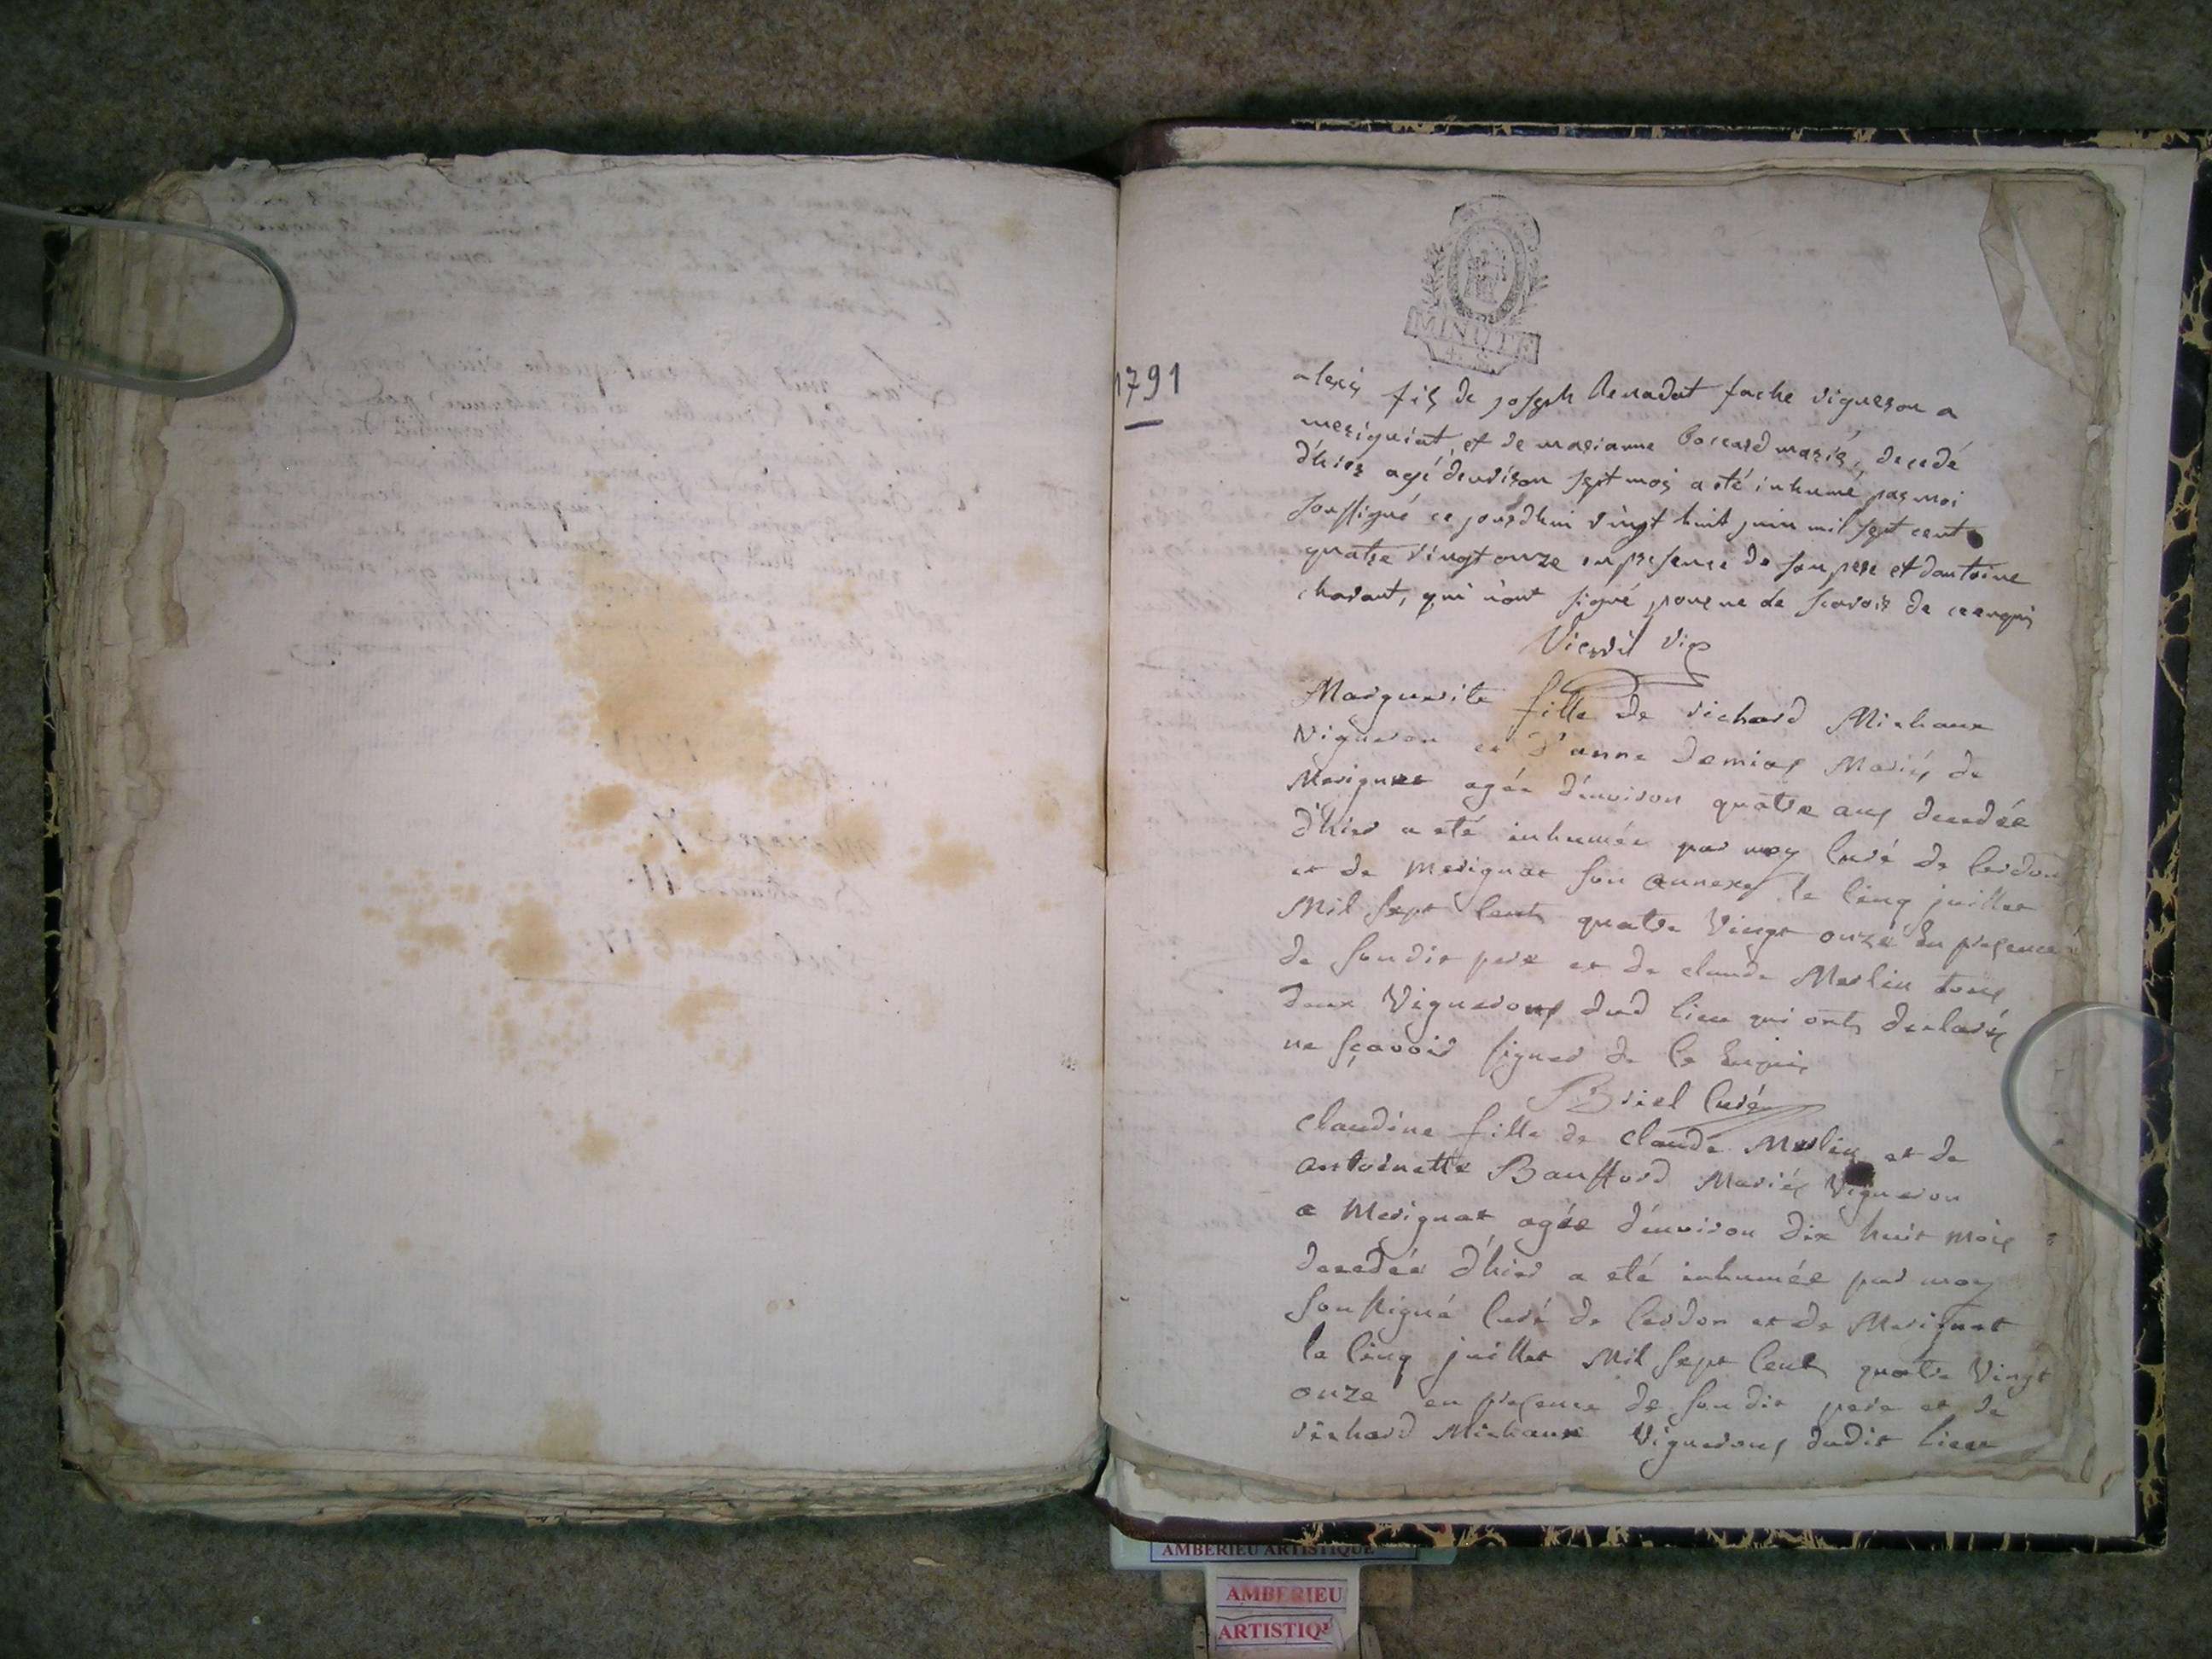 MINUTE
1791
alexis fils de joseph Benadat fache vigneron a
merigniat et de marianne boccard mariés, decedé
d'hier agé d'environ sept mois a eté inhumé par moi
soussigné ce jourdhui vingt huit juin mil sept cent
quatre vingt onze en presence de son pere et dantoine
chavant, qui n'ont signé pour ne le scavoir de ce enquis
vic
Marguerite fille de richard Michaux
Vigneron et D'anne Demias Mariés de
Merignat agée d'environ quatre ans decedée
d'hier a eté inhumée par moy Curé de Cerdon
et de Merignat son annexe le Cinq juillet
Mil sept Cent quatre Vingt onze En presence
de son dit pere et de claude Merlin tous
deux Vignerons dud lieu qui ont declarés
ne sçavoir signer de Ce Enquis
Briel Curé
Claudine fille de Claude Merlin et de
antoinette Bauffard Mariés Vigneron
a Merignat agée d'environ dix huit mois
decedée d'hier a eté inhumée par moy
soussigné Curé de Cerdon et de Merignat
le Cinq juillet Mil sept Cent quatre Vingt
onze en presence de son dit pere et de
richard Michaux Vignerons dudit lieu
AMBERIEU ARTISTIQUE
AMBERIEU
ARTISTIQ